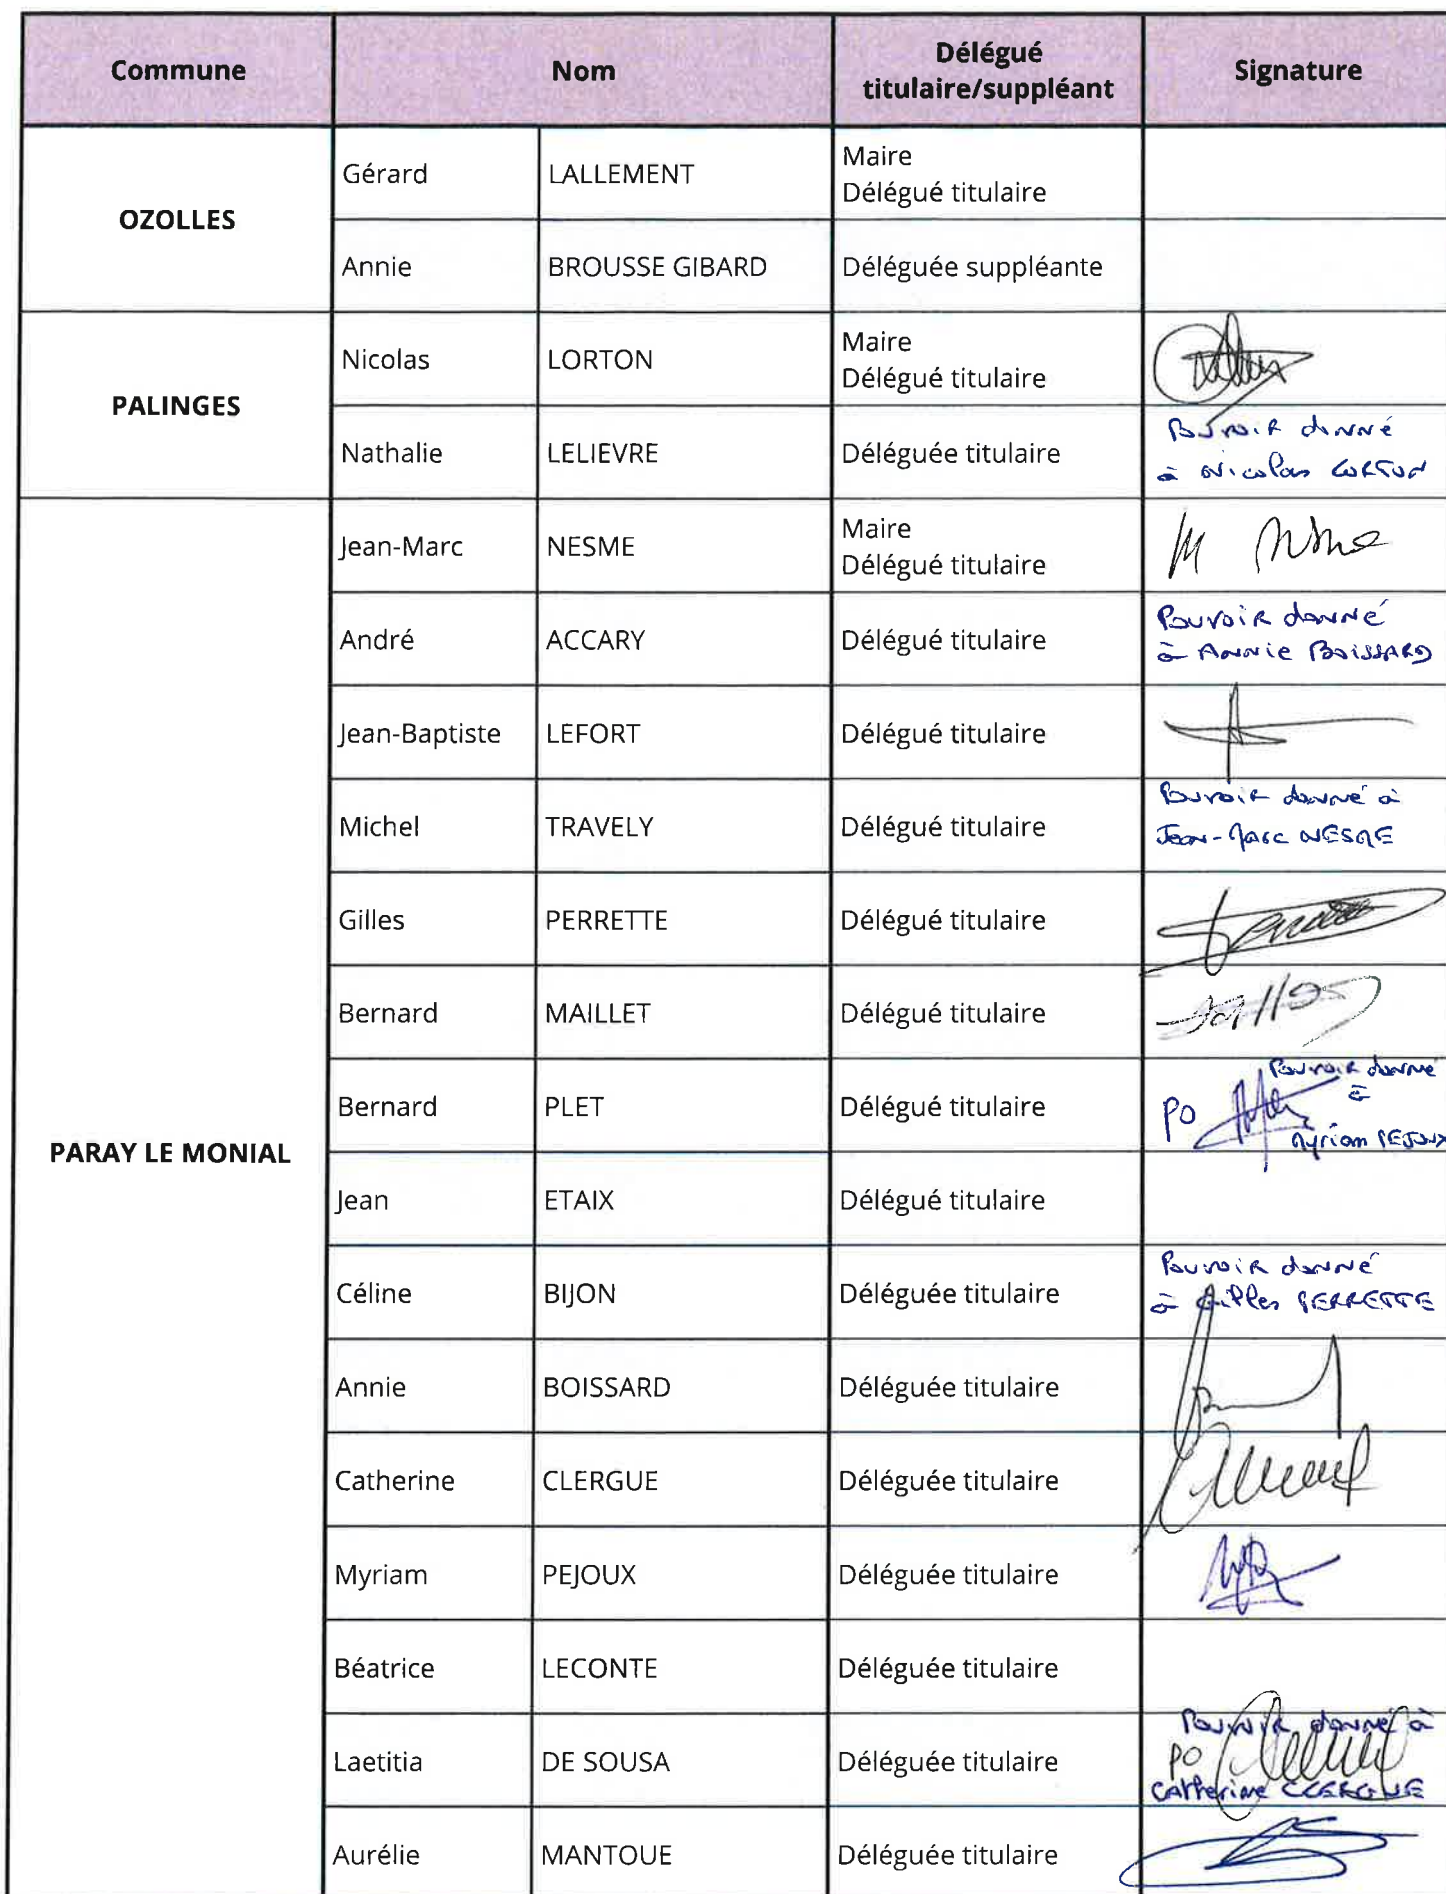 Commune Nom Délégué titulaire/suppléant Signature
OZOLLES
Gérard LALLEMENT Maire
Délégué titulaire
Annie BROUSSE GIBARD Déléguée suppléante
PALINGES
Nicolas LORTON Maire
Délégué titulaire
Nathalie LELIEVRE Déléguée titulaire Pouvoir donné
à Nicolas LORTON
PARAY LE MONIAL
Jean-Marc NESME Maire
Délégué titulaire
André ACCARY Délégué titulaire Pouvoir donné
à Annie BOISSARD
Jean-Baptiste LEFORT Délégué titulaire
Michel TRAVELY Délégué titulaire Pouvoir donné à
Jean-Marc NESME
Gilles PERRETTE Délégué titulaire
Bernard MAILLET Délégué titulaire
Bernard PLET Délégué titulaire PO Pouvoir donné
à
Myriam PEJOUX
Jean ETAIX Délégué titulaire
Céline BIJON Déléguée titulaire Pouvoir donné
à Gilles PERRETTE
Annie BOISSARD Déléguée titulaire
Catherine CLERGUE Déléguée titulaire
Myriam PEJOUX Déléguée titulaire
Béatrice LECONTE Déléguée titulaire
Laetitia DE SOUSA Déléguée titulaire Pouvoir donné à
PO
Catherine CLERGUE
Aurélie MANTOUE Déléguée titulaire